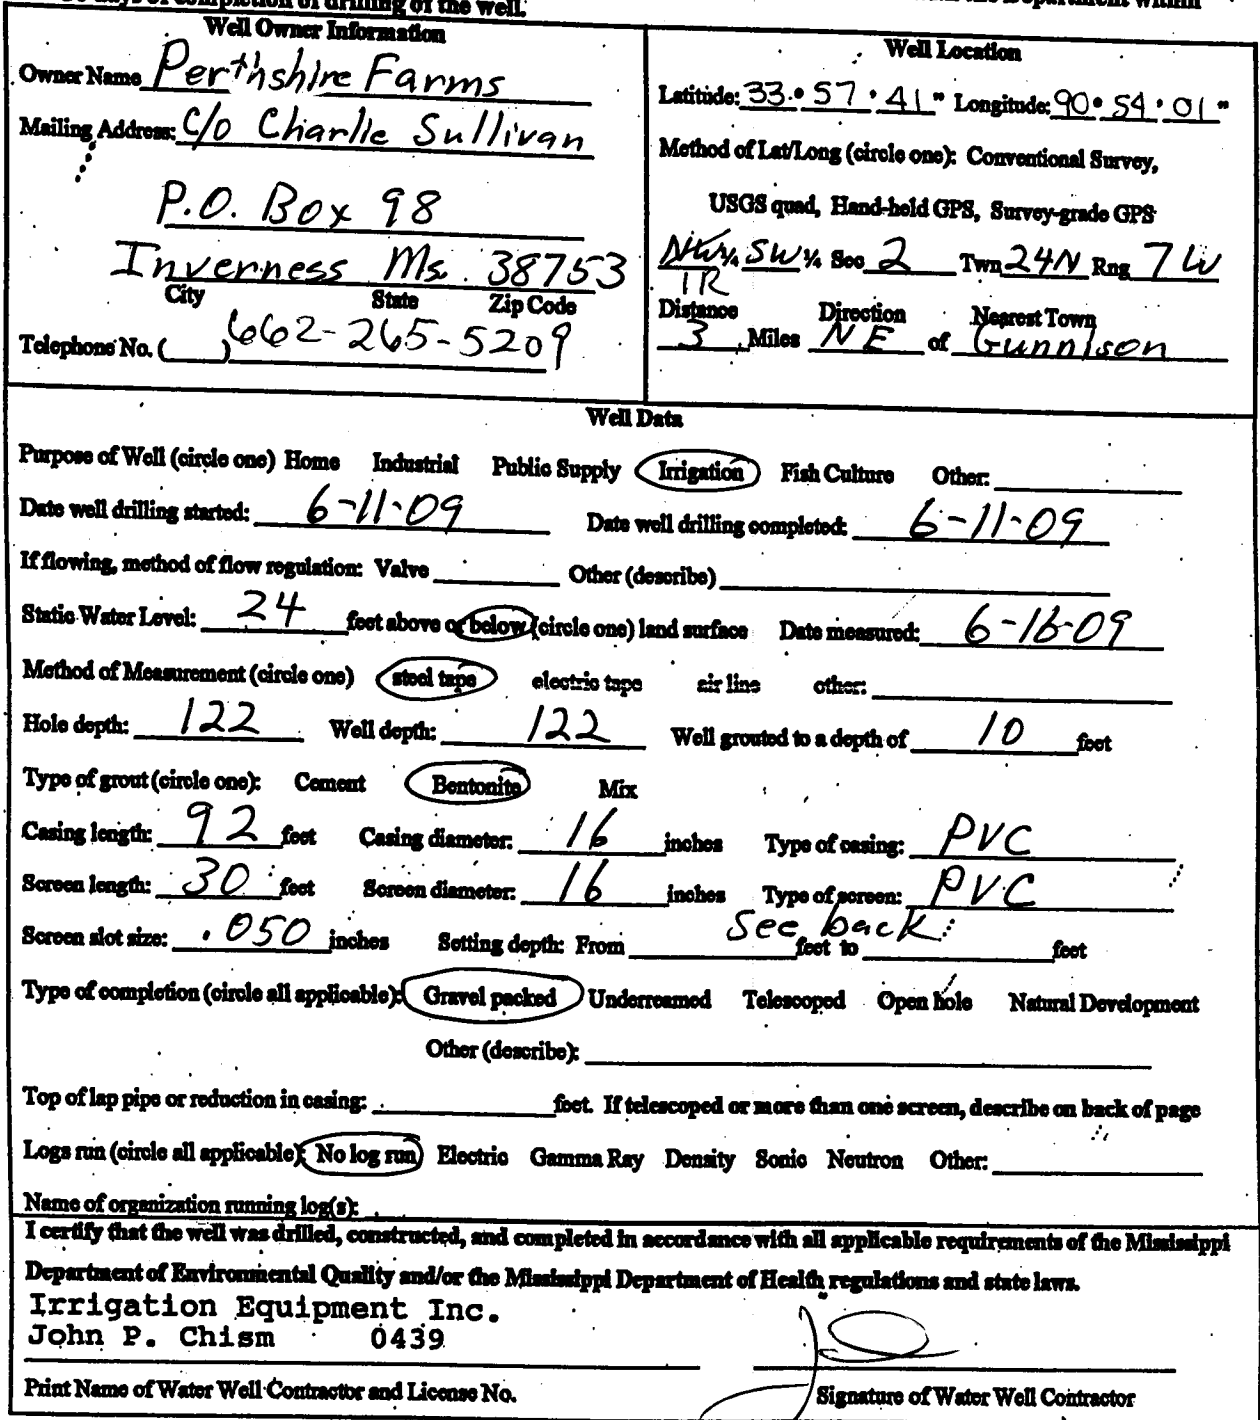 days of completion of drilling of the well. the Department within
Well Owner Information
Owner Name Perthshire Farms
Mailing Address: C/o Charlie Sullivan
P.O. Box 98
Inverness Ms. 38753
City State Zip Code
Telephone No. ( ) 662-265-5209
Well Location
Latitude: 33° 57' 41" Longitude: 90° 54' 01"
Method of Lat/Long (circle one): Conventional Survey,
USGS quad, Hand-held GPS, Survey-grade GPS
NW ¼ SW ¼ Sec 2 Twn 24N Rng 7W
IR
Distance Direction Nearest Town
3 Miles NE of Gunnison
Well Data
Purpose of Well (circle one) Home Industrial Public Supply Irrigation Fish Culture Other:
Date well drilling started: 6-11-09 Date well drilling completed: 6-11-09
If flowing, method of flow regulation: Valve Other (describe)
Static Water Level: 24 feet above or below (circle one) land surface Date measured: 6-16-09
Method of Measurement (circle one) steel tape electric tape air line other:
Hole depth: 122 Well depth: 122 Well grouted to a depth of 10 feet
Type of grout (circle one): Cement Bentonite Mix
Casing length: 92 feet Casing diameter: 16 inches Type of casing: PVC
Screen length: 30 feet Screen diameter: 16 inches Type of screen: PVC
Screen slot size: .050 inches Setting depth: From see back feet to feet
Type of completion (circle all applicable): Gravel packed Underreamed Telescoped Open hole Natural Development
Other (describe):
Top of lap pipe or reduction in casing: feet. If telescoped or more than one screen, describe on back of page
Logs run (circle all applicable): No log run Electric Gamma Ray Density Sonic Neutron Other:
Name of organization running log(s):
I certify that the well was drilled, constructed, and completed in accordance with all applicable requirements of the Mississippi
Department of Environmental Quality and/or the Mississippi Department of Health regulations and state laws.
Irrigation Equipment Inc.
John P. Chism 0439
Print Name of Water Well Contractor and License No. Signature of Water Well Contractor